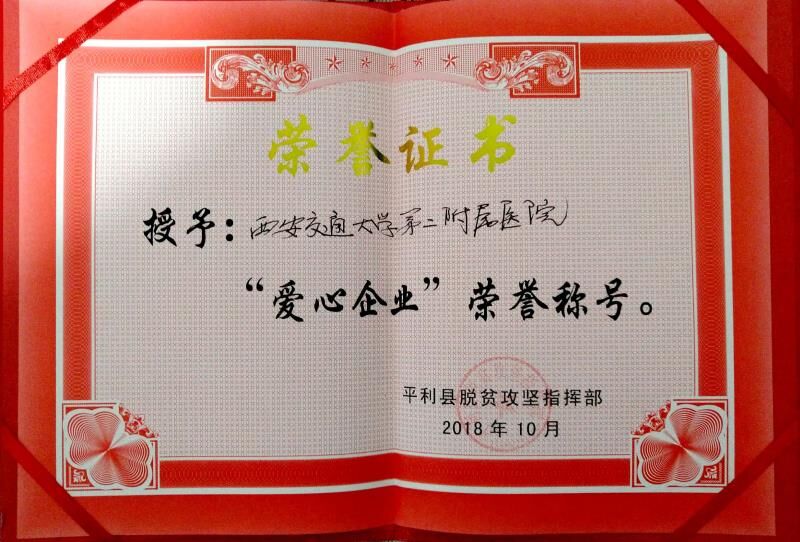 荣誉证书
授予：西安交通大学第二附属医院
“爱心企业”荣誉称号。
平利县脱贫攻坚指挥部
2018年10月